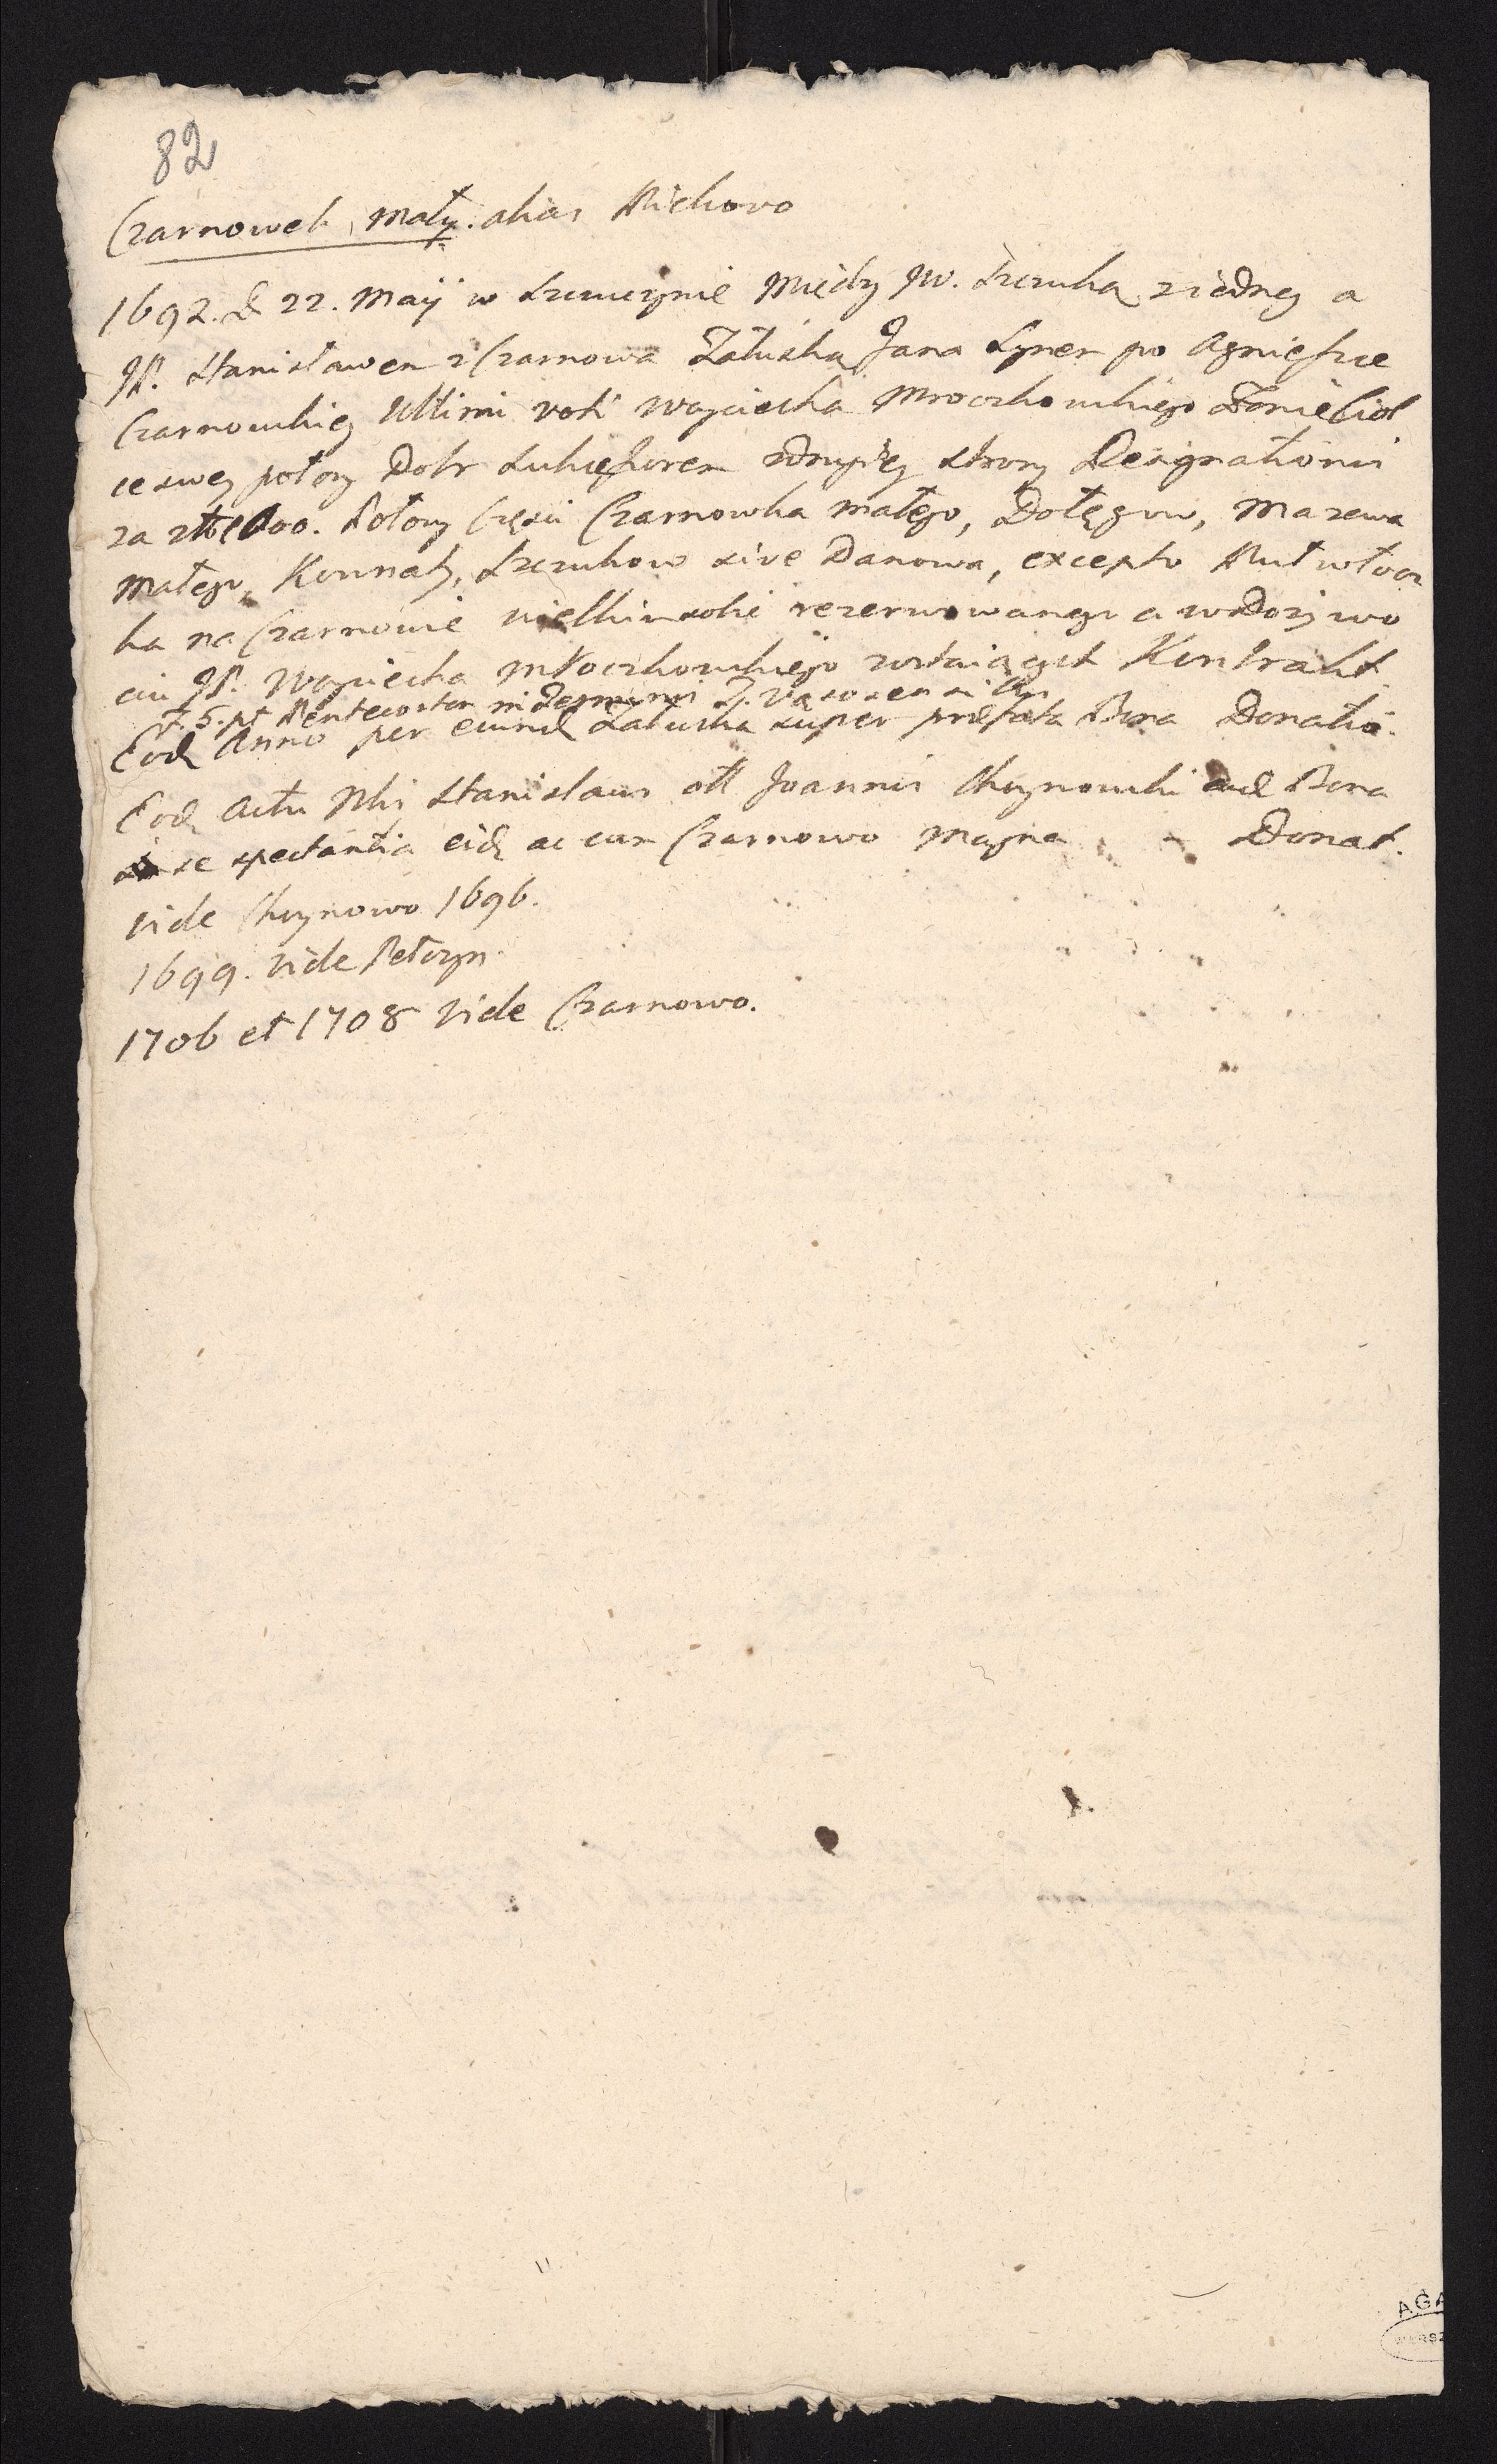 82
Czarnowek Mały. alias Michowo
1692. d. 22. Maij w Szczuczynie Między JW. Szczuką z iedney a
JP. Stanisławem z Czarnowa Załuską Jana Synem po Agnieszce
Czarnowskiey Ultimi voti Woyciecha Mroczkowskiego Żonie Ciot
ce swey połowy Dobr Sukcessorem z drugiey strony Resignationis
za zł. 600. Połowy Części Czarnowka małego, Dołęgow, Mazewa
Małego, Konnaty, Szczukow sive Danowa, excepto Puł włocz
ka na Czarnowie wielkim sobie rezerwowanego a w Dożywo
ciu JP. Woyciecha Młoczkowskiego zostaiącego Kontrakt.
F. 5. pt Pentecosten in Terminis T. Vąsosensi
Eod Anno per eund Załuska super præfata Bona Donatio.
Eod Actu Nbis Stanislaus olt Joannis Chuynowski Bona
se spectantia eid ac cum Czarnowo Magna Donat.
Vide Chuynowo 1696.
1699. Vide Pełczyn.
1706 et 1708 Vide Czarnowo.
AGA